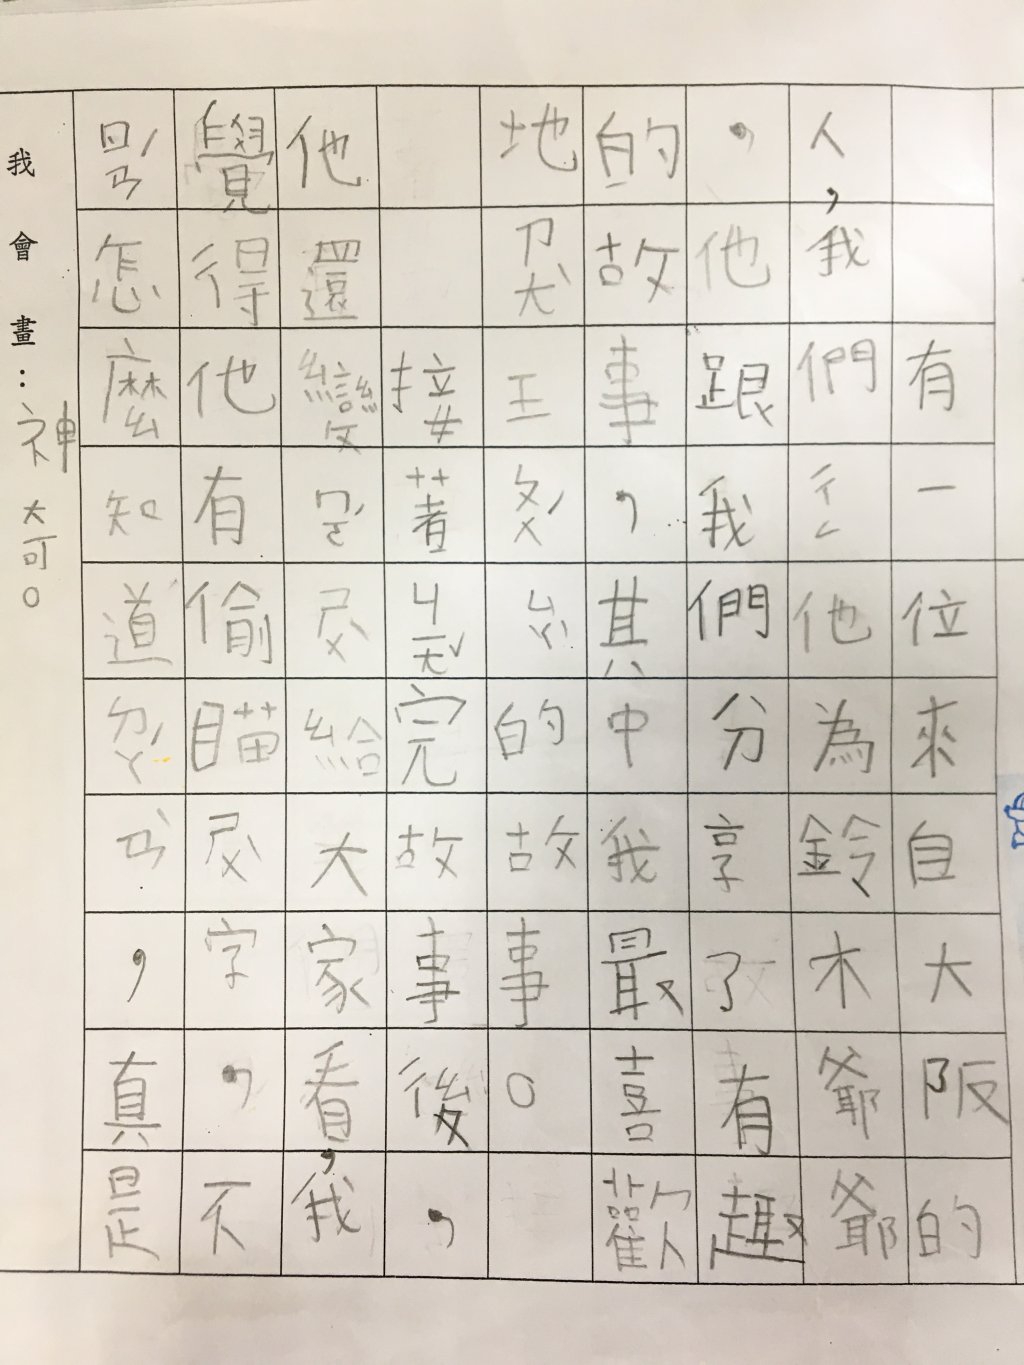 有一位來自大阪的
人,我們ㄔㄥ他為鈴木爺爺
,他跟我們分享了有趣
的故事,其中我最喜歡
地ㄗㄤˋ王ㄆㄨˊㄙㄚˋ的故事。
接著ㄐㄧㄤˇ完故事後,
他還變ㄇㄛˊㄕㄨˋ給大家看,我
覺得他有偷瞄ㄕㄨˋ字,不
ㄖㄢˊ怎麼知道ㄉㄚˊㄢˋ,真是
我會畫：
神奇。